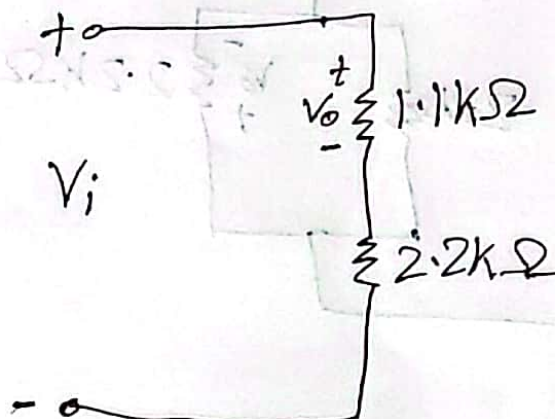 +
+
Vo 1.1kΩ
-
Vi
2.2KΩ
-